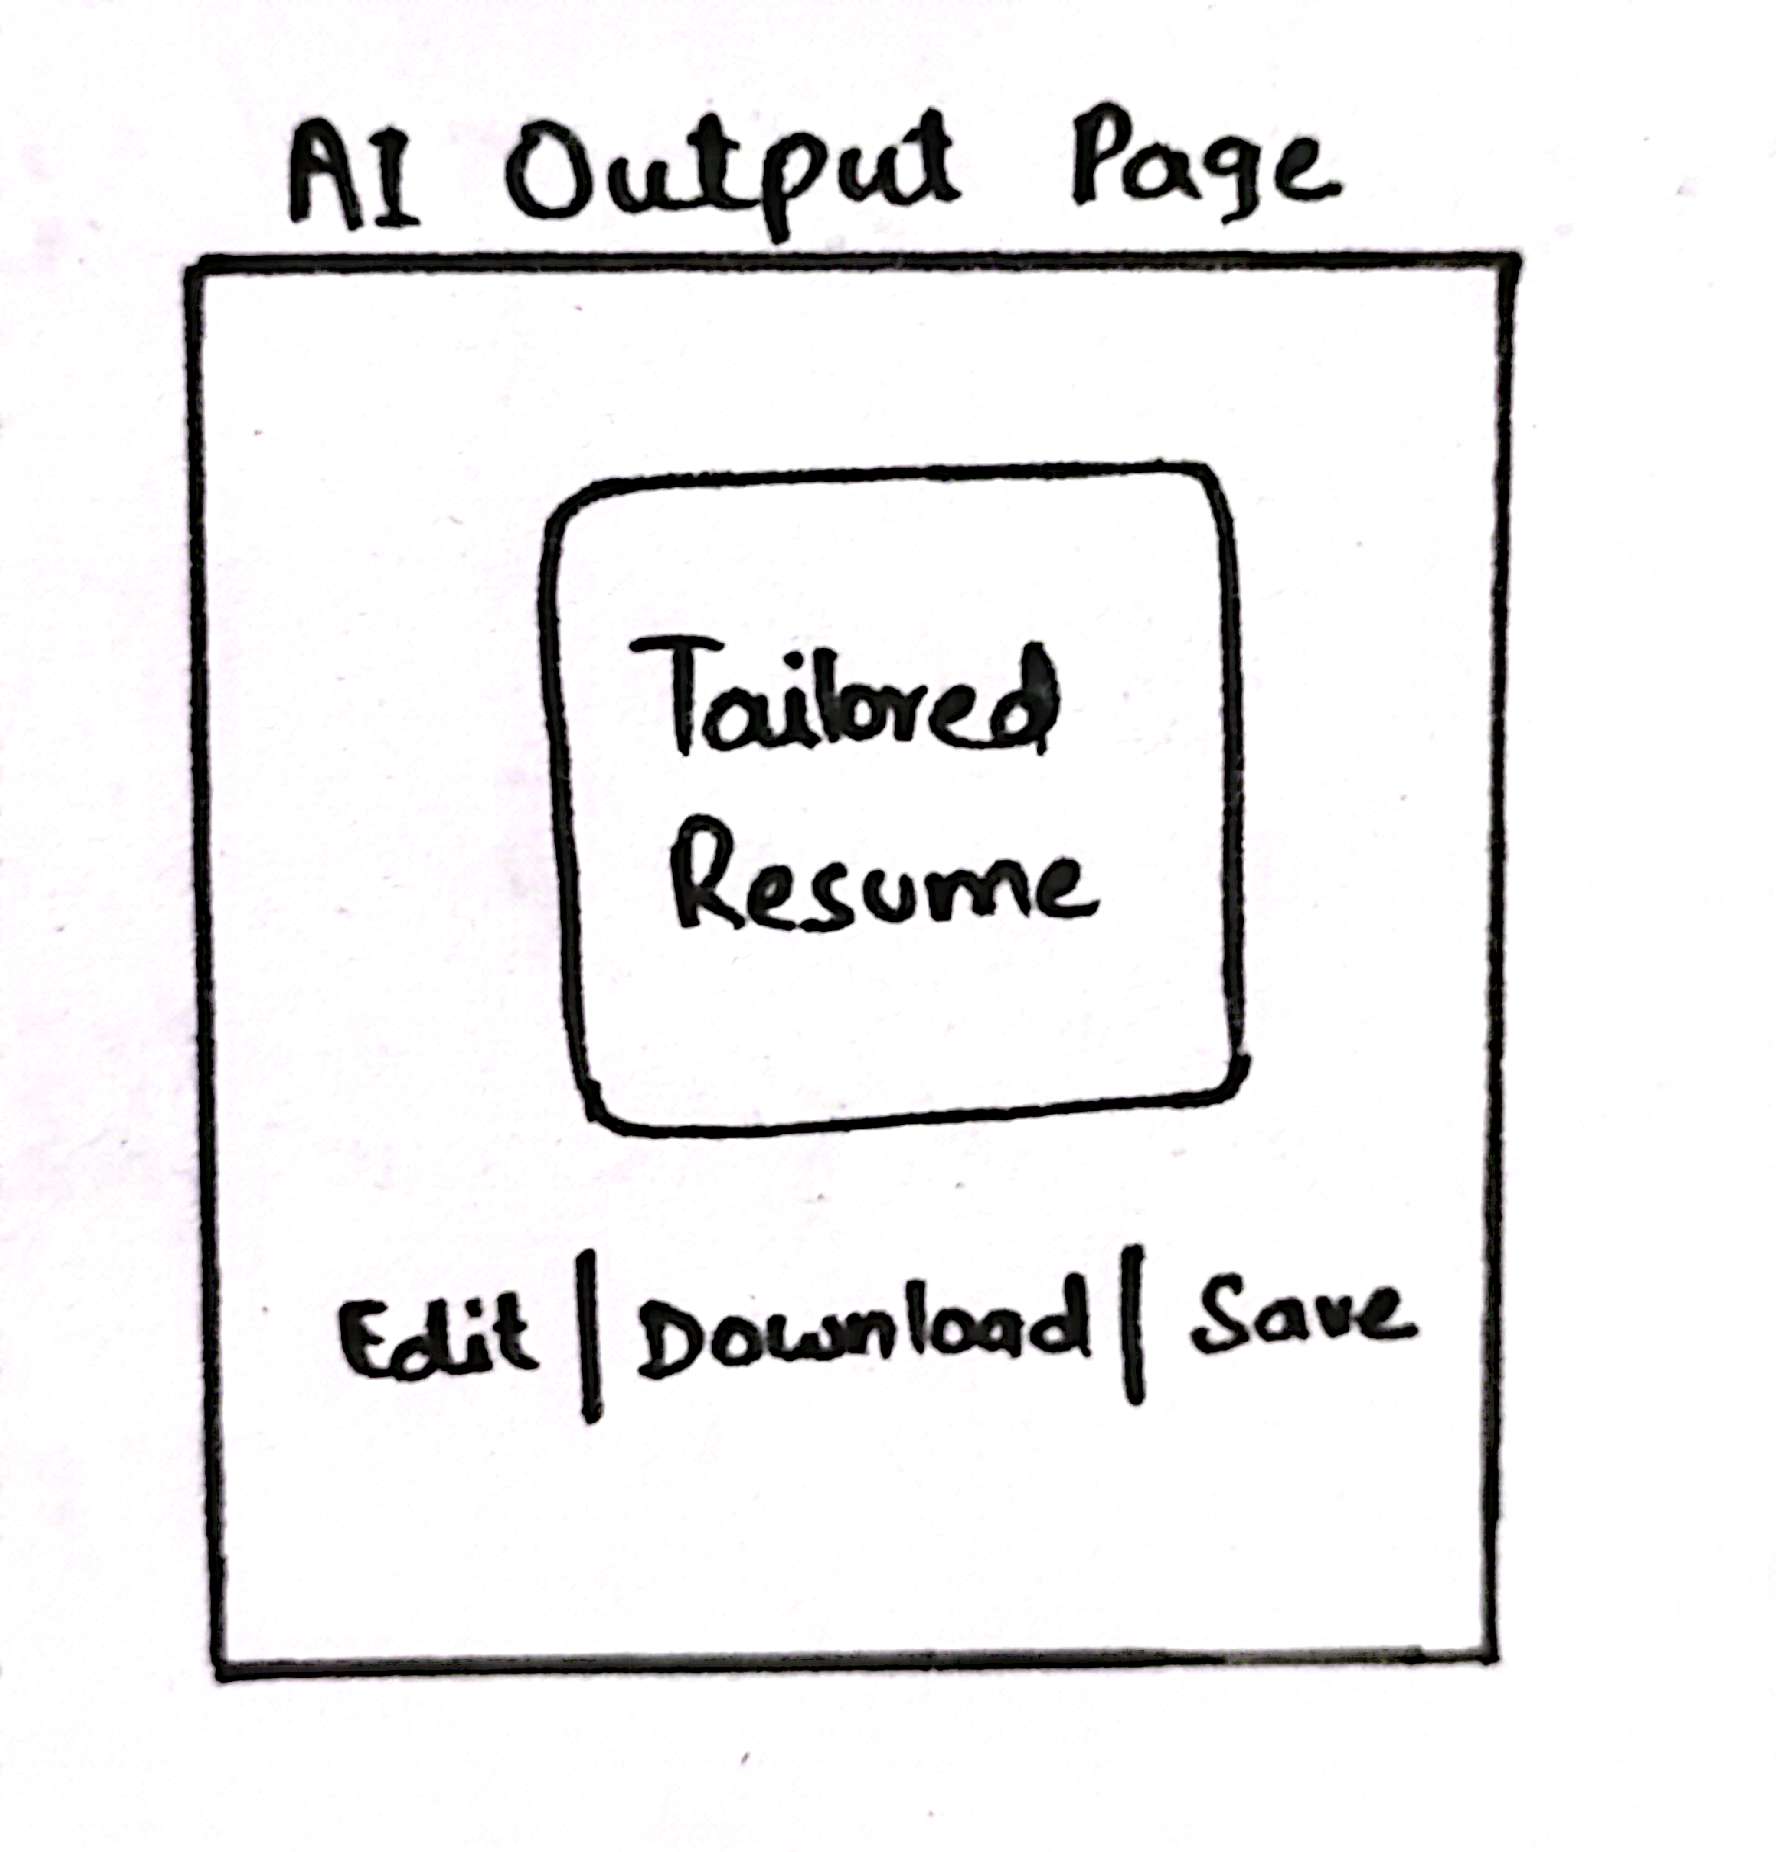 AI Output Page
Tailored
Resume
Edit | Download | Save